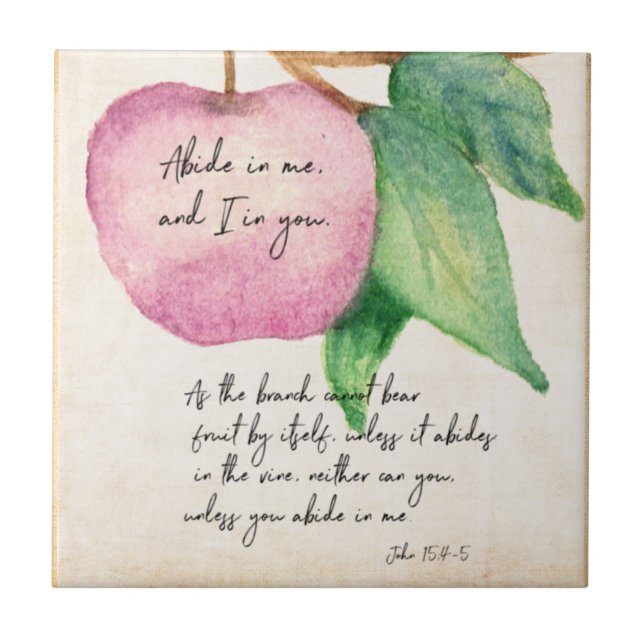 Abide in me,
and I in you.
As the branch cannot bear
fruit by itself, unless it abides
in the vine, neither can you,
unless you abide in me.
John 15:4-5